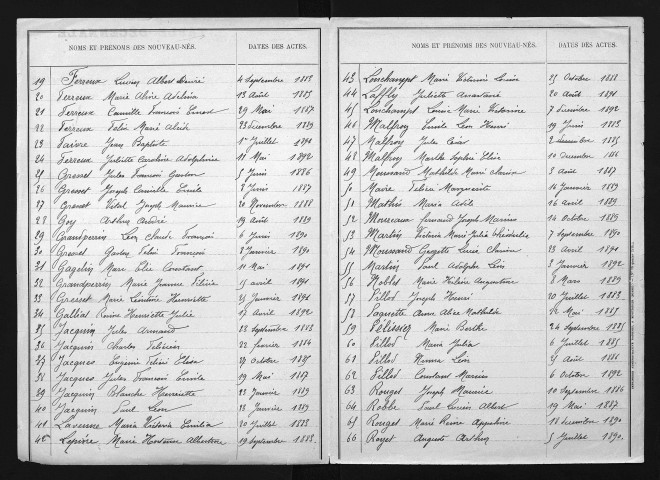 NOMS ET PRENOMS DES NOUVEAU-NÉS. DATES DES ACTES.
19 Ferreux Lucien Albert Désiré 4 Septembre 1888
20 Ferreux Marie Aline Adelina 13 Août 1885
21 Ferreux Camille François Ernest 29 Mai 1887
22 Ferreux Félix Marie Alix 23 décembre 1889
23 Faivre Jean Baptiste 1er Juillet 1890
24 Ferreux Juliette Caroline Adolphine 11 Mai 1892
25 Gresset Jules François Gaston 5 Juin 1886
26 Gresset Joseph Camille Emile 2 Juin 1887
27 Gresset Vital Joseph Maurice 20 Novembre 1888
28 Goy Arthur André 19 Août 1889
29 Grandperrin Léon Claude François 6 Juin 1890
30 Gresset Gaston Félix François 2 Janvier 1890
31 Gagelin Marc Elie Constant 11 Mai 1891
32 Grandperrin Marie Jeanne Félicie 15 avril 1891
33 Gresset Marie Léontine Henriette 25 Janvier 1891
34 Galliot Reine Henriette Julie 17 Avril 1892
35 Jacquin Jules Armand 28 Septembre 1883
36 Jacquin Charles Félicien 22 février 1884
37 Jacques Eugénie Félicie Elisa 27 Octobre 1885
38 Jacques Jules François Emile 19 Mai 1887
39 Jacquin Blanche Henriette 23 Janvier 1889
40 Jacquin Paul Léon 23 Janvier 1889
41 Lavenne Maria Victoria Emilia 20 Juillet 1883
42 Lepivre Marie Hortense Albertine 19 Septembre 1883
NOMS ET PRÉNOMS DES NOUVEAU-NÉS. DATES DES ACTES.
43 Lonchampt Marie Victorine Louise 25 Octobre 1888
44 Laffly Juliette Anastasie 20 Août 1891
45 Lonchampt Louise Marie Victorine 7 décembre 1892
46 Malfroy Emile Léon Henri 19 Juin 1883
47 Malfroy Jules César 2 décembre 1885
48 Malfroy Marthe Sophie Elise 10 décembre 1886
49 Moussard Mathilde Marie 3 Août 1887
50 Maire Félicie Marguerite 16 Janvier 1889
51 Mathis Maria Adèle 16 Avril 1889
52 Moureaux Fernand Joseph 14 Octobre 1889
53 Martin Victoria Marie Julia 7 Septembre 1890
54 Moussard Georgette Lucie 23 Avril 1890
55 Martin Paul Adolphe Léon 3 Janvier 1892
56 Nobbot Marie Hélène Augustine 8 Mars 1889
57 Pillod Joseph Henri 20 Juillet 1883
58 Paquette Anna Alice Mathilde 12 Mai 1885
59 Pélissier Marie Berthe 24 Septembre 1885
60 Pillod Maria Julia 6 Juillet 1885
61 Pillod Numa Léon 27 Août 1886
62 Pillod Constant Marius 6 Octobre 1892
63 Rouget Joseph Maurice 10 Septembre 1886
64 Robbe Paul Lucien Albert 19 Mai 1887
65 Rouget Marie Reine Appoline 18 décembre 1890
66 Royet Auguste Arthur 5 Juillet 1890.